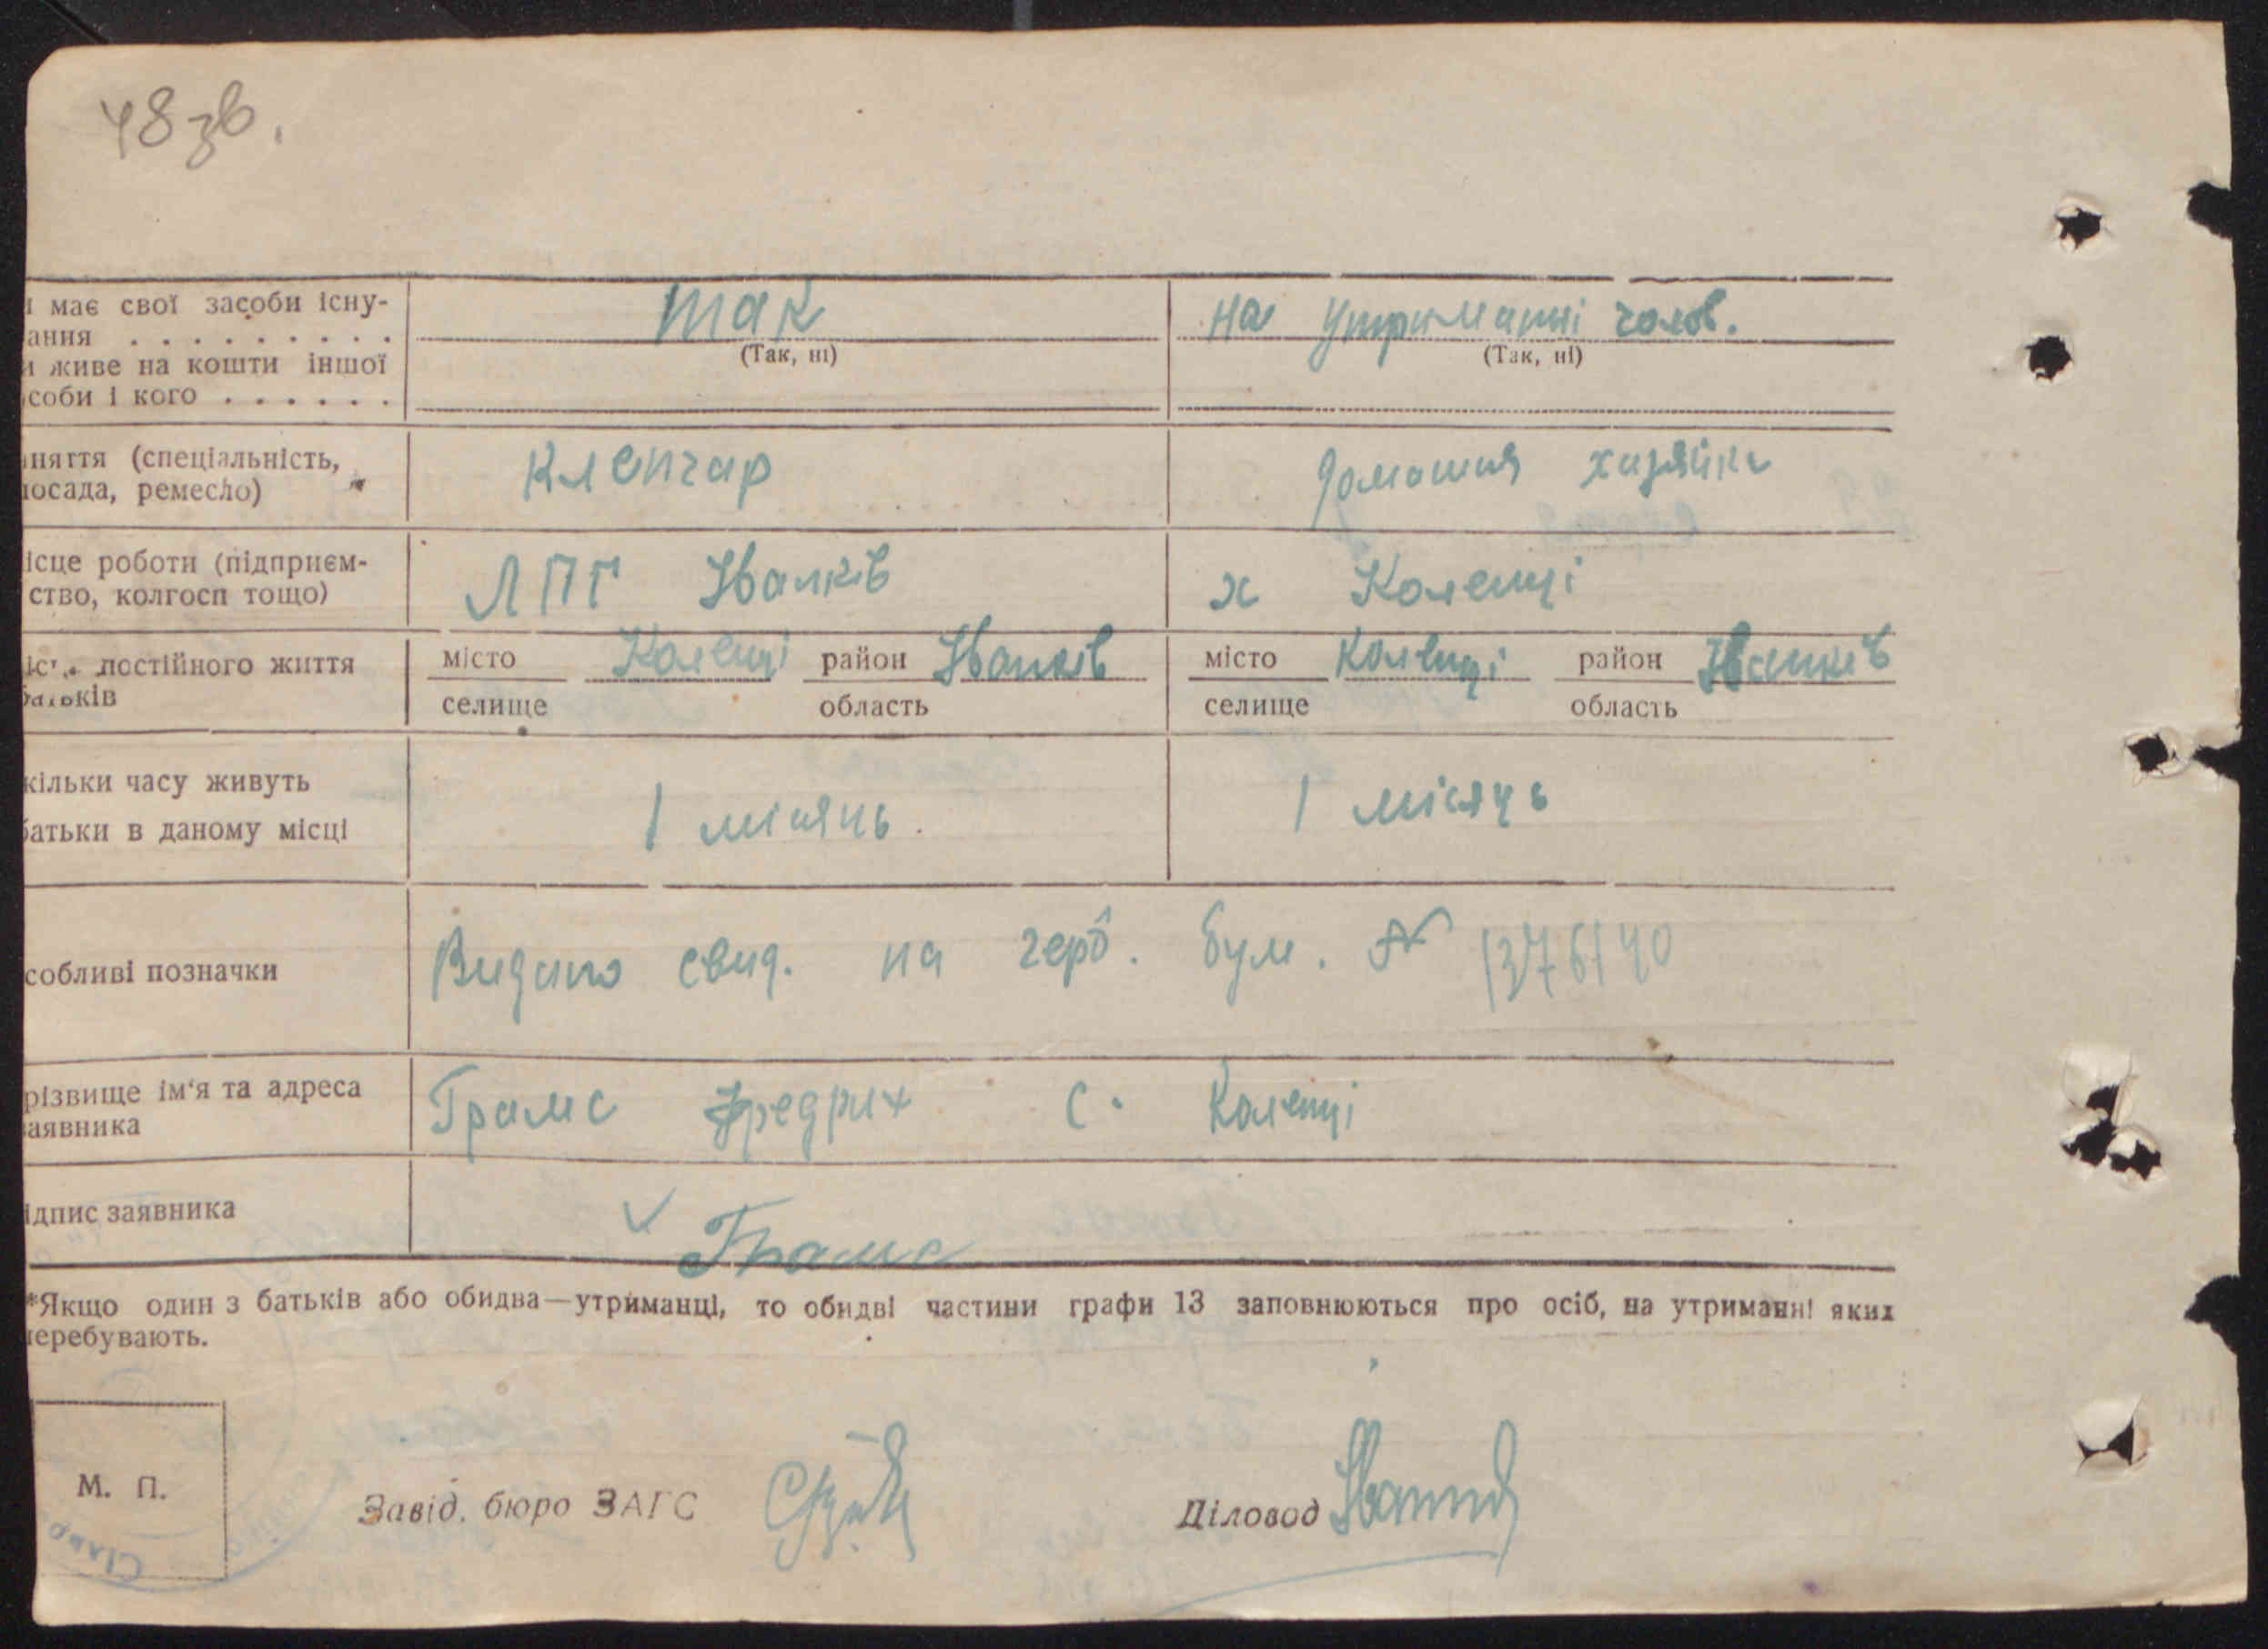 48 зв.
и має свої засоби існу- так на утриманні чолов.
ання . . . . . . . . . (Так, ні) (Так, ні)
и живе на кошти іншої
соби і кого . . . . . .
няття (спеціальність, Клепчар домашня хазяйка
посада, ремесло)
ісце роботи (підприєм- ЛПГ Іванків х Коленці
ство, колгосп тощо)
постійного життя місто Коленці район Іванків місто Коленці район Іванків
батьків селище область селище область
кільки часу живуть 1 місяць. 1 місяць
батьки в даному місці
собливі позначки Видано свид. на герб. бум. № 1376140
різвище ім'я та адреса Грамс Фредрих с. Коленці
заявника
ідпис заявника Грамс
*Якщо один з батьків або обидва—утриманці, то обидві частини графи 13 заповнюються про осіб, на утриманні яких
перебувають.
М. П. Завід. бюро ЗАГС Діловод